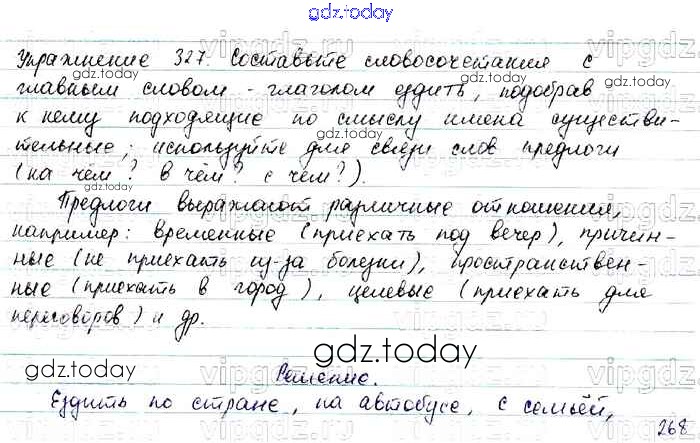 gdz.today
Упражнение 327. Составьте словосочетания с
главным словом - глаголом ездить, подобрав
к нему подходящие по смыслу имена существи-
тельные; используйте для связи слов предлоги
(на чём? в чём? с чем?).
Предлоги выражают различные отношения,
например: временные (приехать под вечер), причин-
ные (не приехать из-за болезни), пространствен-
ные (приехать в город), целевые (приехать для
переговоров) и др.
gdz.today
Решение.
Ездить по стране, на автобусе, с семьёй,
268